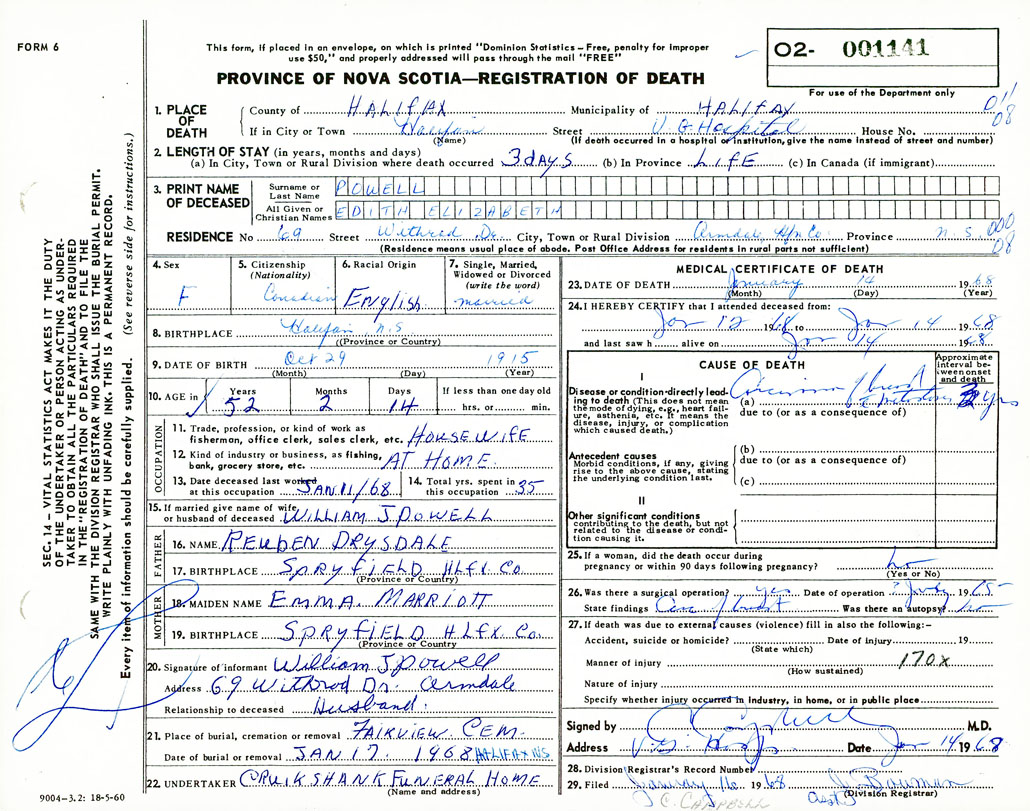 FORM 6
This form, if placed in an envelope, on which is printed "Dominion Statistics – Free, penalty for improper
use $50," and properly addressed will pass through the mail "FREE"
O2- 001141
PROVINCE OF NOVA SCOTIA—REGISTRATION OF DEATH
For use of the Department only
011
08
1. PLACE OF DEATH
County of HALIFAX Municipality of HALIFAX
If in City or Town Halifax Street V. G Hospital House No.
(Name) (If death occurred in a hospital or institution, give the name instead of street and number)
2. LENGTH OF STAY (in years, months and days)
(a) In City, Town or Rural Division where death occurred 3 days (b) In Province LIFE (c) In Canada (if immigrant)
3. PRINT NAME OF DECEASED
Surname or Last Name POWELL
All Given or Christian Names EDITH ELIZABETH
RESIDENCE No 69 Street Withrod Dr. City, Town or Rural Division Armdale Hfx Co. Province N.S. 000
08
(Residence means usual place of abode. Post Office Address for residents in rural parts not sufficient)
4. Sex F
5. Citizenship (Nationality) Canadian
6. Racial Origin English
7. Single, Married, Widowed or Divorced (write the word) married
8. BIRTHPLACE Halifax, N.S
(Province or Country)
9. DATE OF BIRTH Oct 29 1915
(Month) (Day) (Year)
10. AGE in Years 52 Months 2 Days 14 If less than one day old
hrs. or min.
OCCUPATION
11. Trade, profession, or kind of work as
fisherman, office clerk, sales clerk, etc. HOUSEWIFE
12. Kind of industry or business, as fishing,
bank, grocery store, etc. AT HOME.
13. Date deceased last worked
at this occupation JAN 11/68
14. Total yrs. spent in
this occupation 35
15. If married give name of wife
or husband of deceased WILLIAM J. POWELL
FATHER
16. NAME REUBEN DRYSDALE
17. BIRTHPLACE SPRYFIELD HLFX CO
(Province or Country)
MOTHER
18. MAIDEN NAME EMMA. MARRIOTT
19. BIRTHPLACE SPRYFIELD HLFX CO.
(Province or Country)
20. Signature of informant William J Powell
Address 69 Withrod Dr. Armdale
Relationship to deceased Husband.
21. Place of burial, cremation or removal FAIRVIEW CEM.
Date of burial or removal JAN 17 1968 HALIFAX NS
22. UNDERTAKER CRUIKSHANK FUNERAL HOME
(Name and address)
MEDICAL CERTIFICATE OF DEATH
23. DATE OF DEATH January 14 1968
(Month) (Day) (Year)
24. I HEREBY CERTIFY that I attended deceased from:
Jan 12 1968 to Jan 14 1968
and last saw h alive on Jan 14 1968
CAUSE OF DEATH
Approximate interval between onset and death
I
Disease or condition directly leading to death (This does not mean the mode of dying, e.g., heart failure, asthenia, etc. It means the disease, injury, or complication which caused death.)
(a) Carcinoma breast yrs
due to (or as a consequence of)
Antecedent causes
Morbid conditions, if any, giving rise to the above cause, stating the underlying condition last.
(b)
due to (or as a consequence of)
(c)
II
Other significant conditions
contributing to the death, but not related to the disease or condition causing it.
25. If a woman, did the death occur during
pregnancy or within 90 days following pregnancy? no
(Yes or No)
26. Was there a surgical operation? yes Date of operation July 1965
State findings Breast Was there an autopsy? no
27. If death was due to external causes (violence) fill in also the following:–
Accident, suicide or homicide? Date of injury 19
(State which)
Manner of injury 170X
(How sustained)
Nature of injury
Specify whether injury occurred in industry, in home, or in public place
Signed by M.D.
Address V.G. Hosp Date Jan 14 1968
28. Division Registrar's Record Number
29. Filed January 16 1968 J. Bauman
(Division Registrar)
C. CAMPBELL
Asst
SEC. 14 – VITAL STATISTICS ACT MAKES IT THE DUTY
OF THE UNDERTAKER OR PERSON ACTING AS UNDERTAKER
TO OBTAIN ALL THE PARTICULARS REQUIRED
IN THE "REGISTRATION OF DEATH" AND TO FILE THE
SAME WITH THE DIVISION REGISTRAR WHO SHALL ISSUE THE BURIAL PERMIT.
WRITE PLAINLY WITH UNFADING INK. THIS IS A PERMANENT RECORD.
Every item of information should be carefully supplied. (See reverse side for instructions.)
9004–3.2: 18-5-60